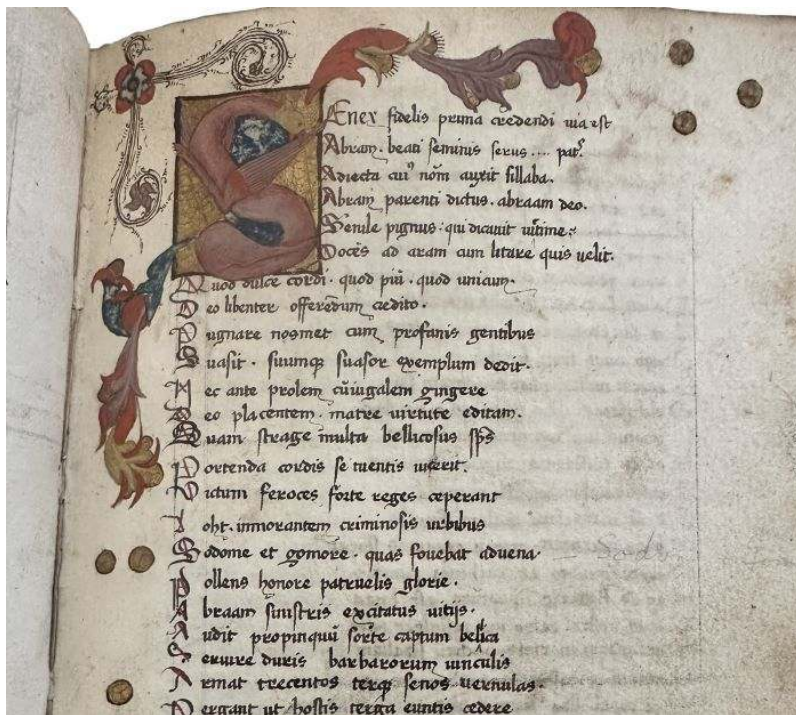 Senex fidelis prima credendi uia est
Abram. beati seminis serus .... pat͛.
Adiecta cuiꝰ nom̄ auxit sillaba.
Abram parenti dictus. abraam deo.
Senile pignus. qui dicauit uitime.
Docēs ad aram cum litare quis uelit.
Quod dulce cordi. quod piū. quod unicum.
Deo libenter offerēdum credito.
Pugnare nosmet cum profanis gentibus
Suasit. suumqꝫ suasor exemplum dedit.
Nec ante prolem cūiugalem gingere
Deo placentem. matre virtute editam.
Quam strage multa bellicosus sp̄s
Portenda cordis se uentis
Victum feroces forte reges ceperant
Loht. inmorantem criminosis urbibus
Sodome et gomore. quas fouebat aduena.
Pollens honore patruelis glorie.
Abraam sinistris excitatus uitijs.
Audit propinquū sorte captum belica
Seruire duris barbarorum uinculis
Armat trecentos terqꝫ senos uernulas.
Pergant ut hostis terga euntis cedere